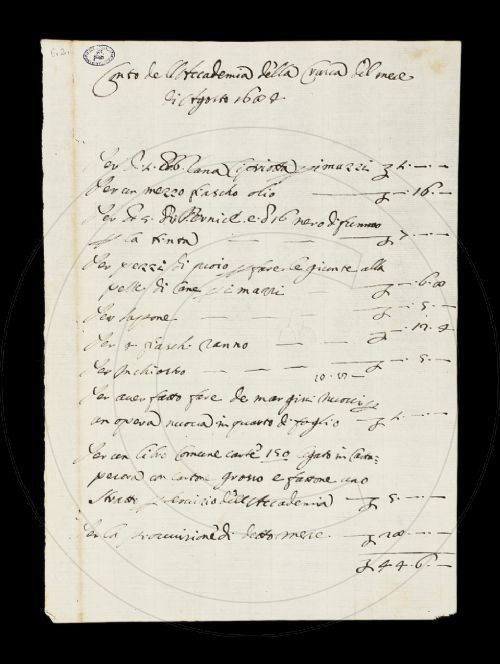 6.2.
Conto dell'Accademia della Crusca del mese
di Agosto 168
Per lana p i mazzi
Per un mezzo fiascho olio 16
Per Vernice e 16 nero di fummo
p la tinta 7
Per pezzi di quoio p fare le giunte alla
pelle di cane p i mazzi 6
Per sapone 5
Per fiaschi ranno
Per Inchiostro 5
Per aver fatto fare de margini nuovi p
un opera nuova in quarto di foglio
Per un libro comune carte 150 legato in carta
pecora con cartone grosso e fattone uno
p servizio dell'Accademia 5
Per la provvisione di detto mese
44.6